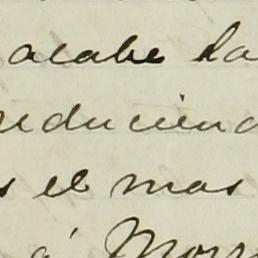 acabe la
reduciend
s el mas
á Mor